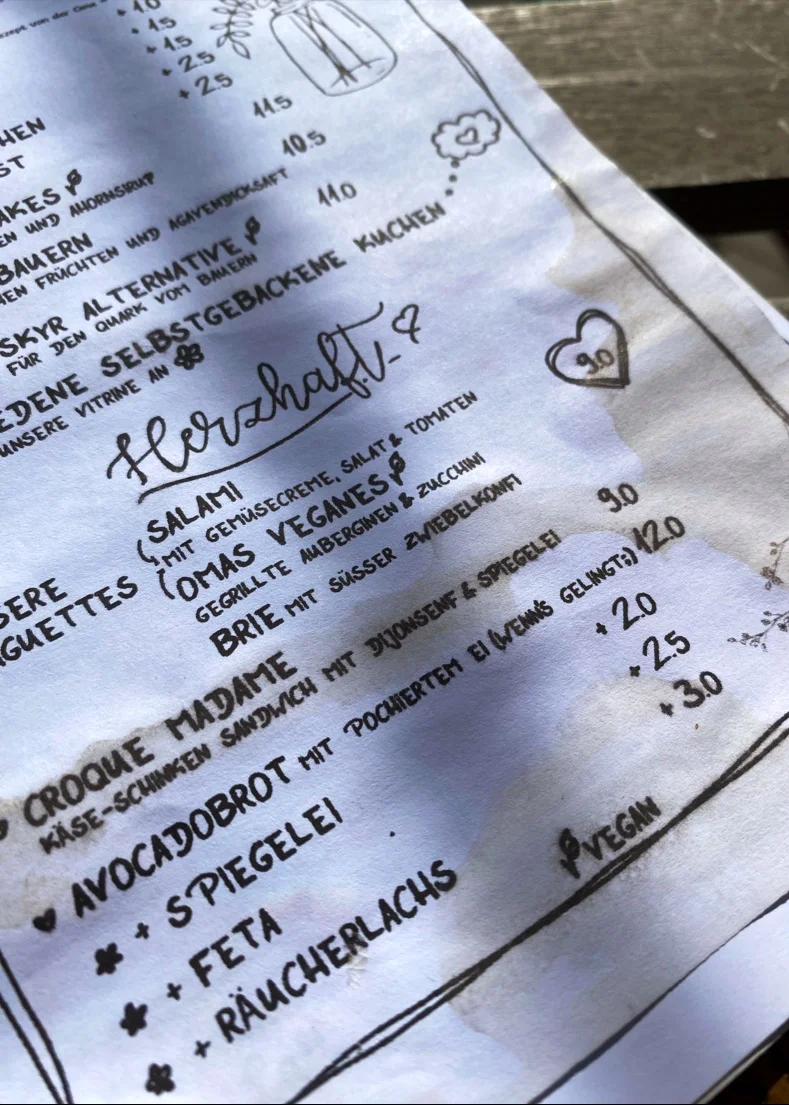 + 1.5
+ 1.5
+ 2.5
+ 2.5
11.5
10.5
UND AHORNSIRUP
BAUERN
FRÜCHTEN UND AGAVENDICKSAFT
11.0
SKYR ALTERNATIVE
FÜR DEN QUARK VOM BAUERN
SELBSTGEBACKENE KUCHEN
UNSERE VITRINE AN
Herzhaft
9.0
SALAMI
MIT GEMÜSECREME, SALAT & TOMATEN
OMAS VEGANES
GEGRILLTE AUBERGINEN & ZUCCHINI
BRIE MIT SÜSSER ZWIEBELKONFI
CROQUE MADAME 9.0
KÄSE-SCHINKEN SANDWICH MIT DIJONSENF & SPIEGELEI
AVOCADOBROT MIT POCHIERTEM EI (WENN'S GELINGT;) 12.0
+ SPIEGELEI + 2.0
+ FETA + 2.5
+ RÄUCHERLACHS + 3.0
VEGAN